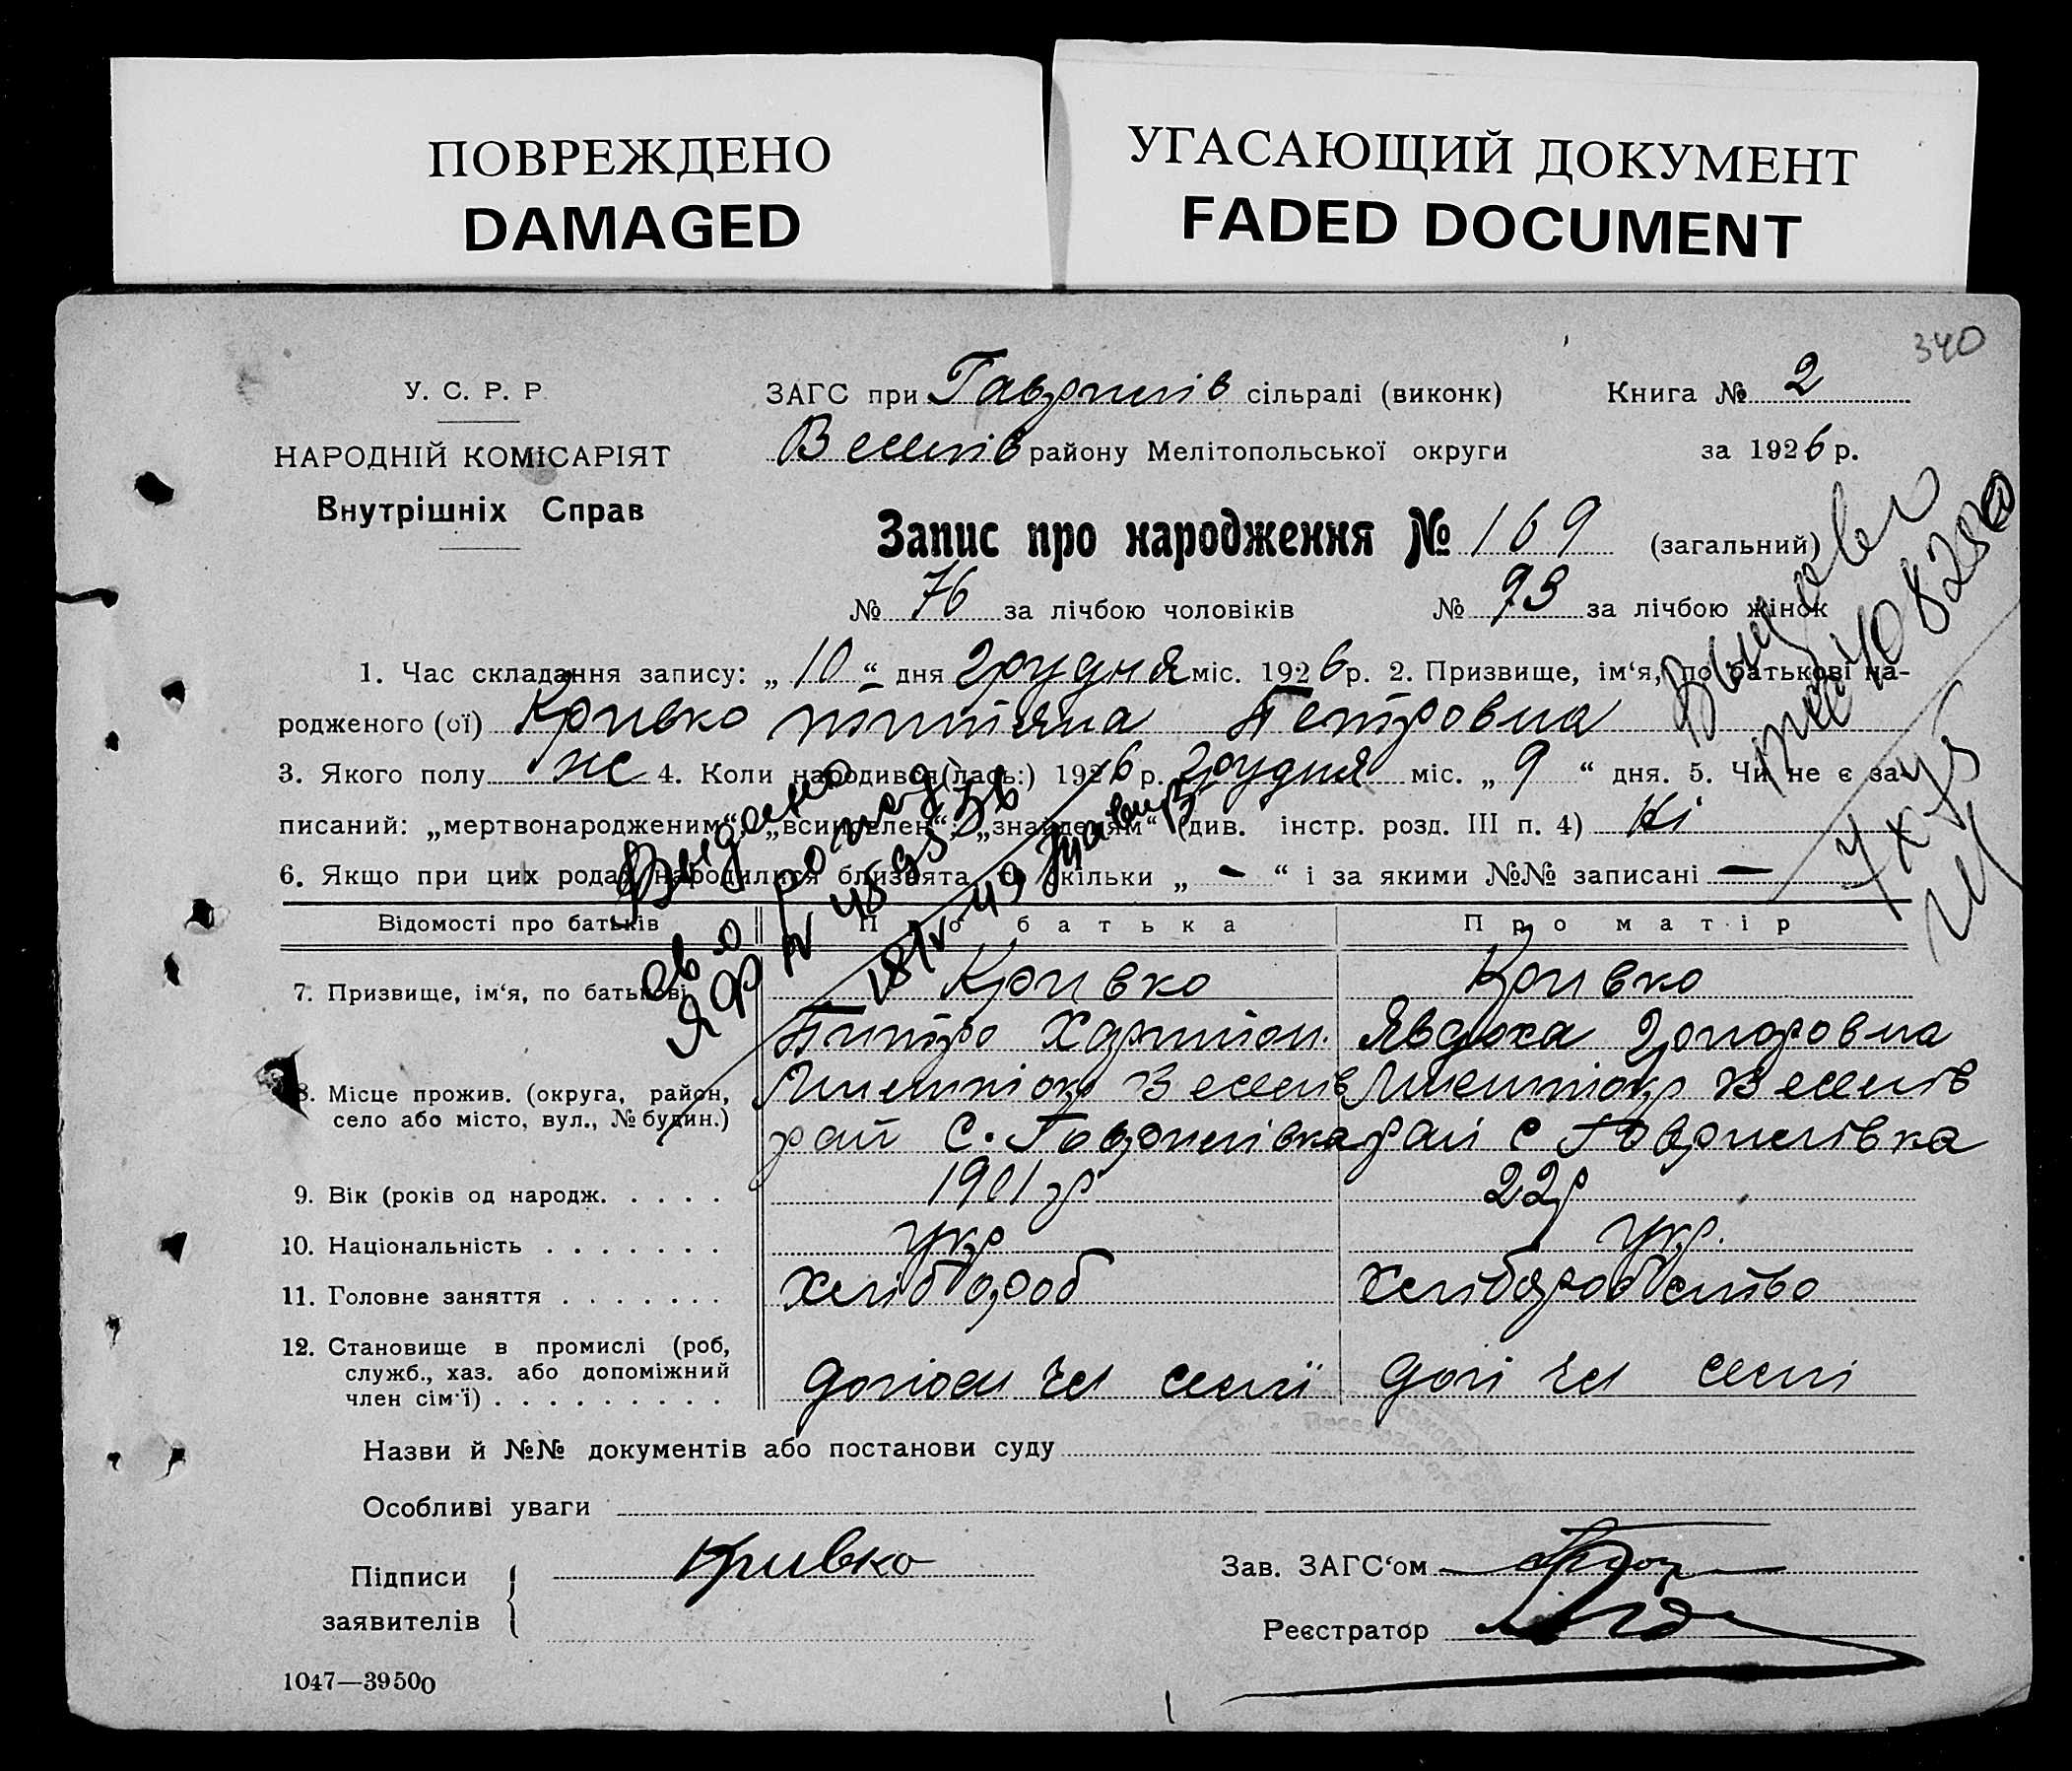 ПОВРЕЖДЕНО
DAMAGED
УГАСАЮЩИЙ ДОКУМЕНТ
FADED DOCUMENT
340
У. С. Р. Р.
НАРОДНІЙ КОМІСАРІЯТ
Внутрішніх Справ
ЗАГС при Гаврилів сільраді (виконк) Книга № 2
Веселів району Мелітопольської округи за 1926 р.
Запис про народження № 169 (загальний)
№ 76 за лічбою чоловіків № 93 за лічбою жінок
1. Час складання запису: „10“ дня грудня міс. 1926 р. 2. Призвище, ім‘я, по батькові на-
родженого (ої) Кривко Петровна
3. Якого полу ж 4. Коли народився(лась:) 1926 р. грудня міс. „9“ дня. 5. Чи не є за-
писаний: „мертвонародженим“, „всиновлен“, „знайденям“ (див. інстр. розд. III п. 4) Ні
6. Якщо при цих родах народилися близнята, скільки „-“ і за якими №№ записані —
Відомості про батьків Про батька Про матір
7. Призвище, ім‘я, по батькові Кривко Кривко
Питро Харитон. Явдоха
8. Місце прожив. (округа, район, село або місто, вул., № будин.) Веселів Веселів
рай С. Гаврилівка рай с Гаврилівка
9. Вік (років од народж. 1901 р 22 р
10. Національність укр укр.
11. Головне заняття хлібороб хліборобство
12. Становище в промислі (роб, служб., хаз. або допоміжний член сім‘ї) чл семї чл семі
Назви й №№ документів або постанови суду
Особливі уваги
Підписи заявителів Кривко
Зав. ЗАГС‘ом
Реєстратор
1047—39500
Выдано
18/IV 49